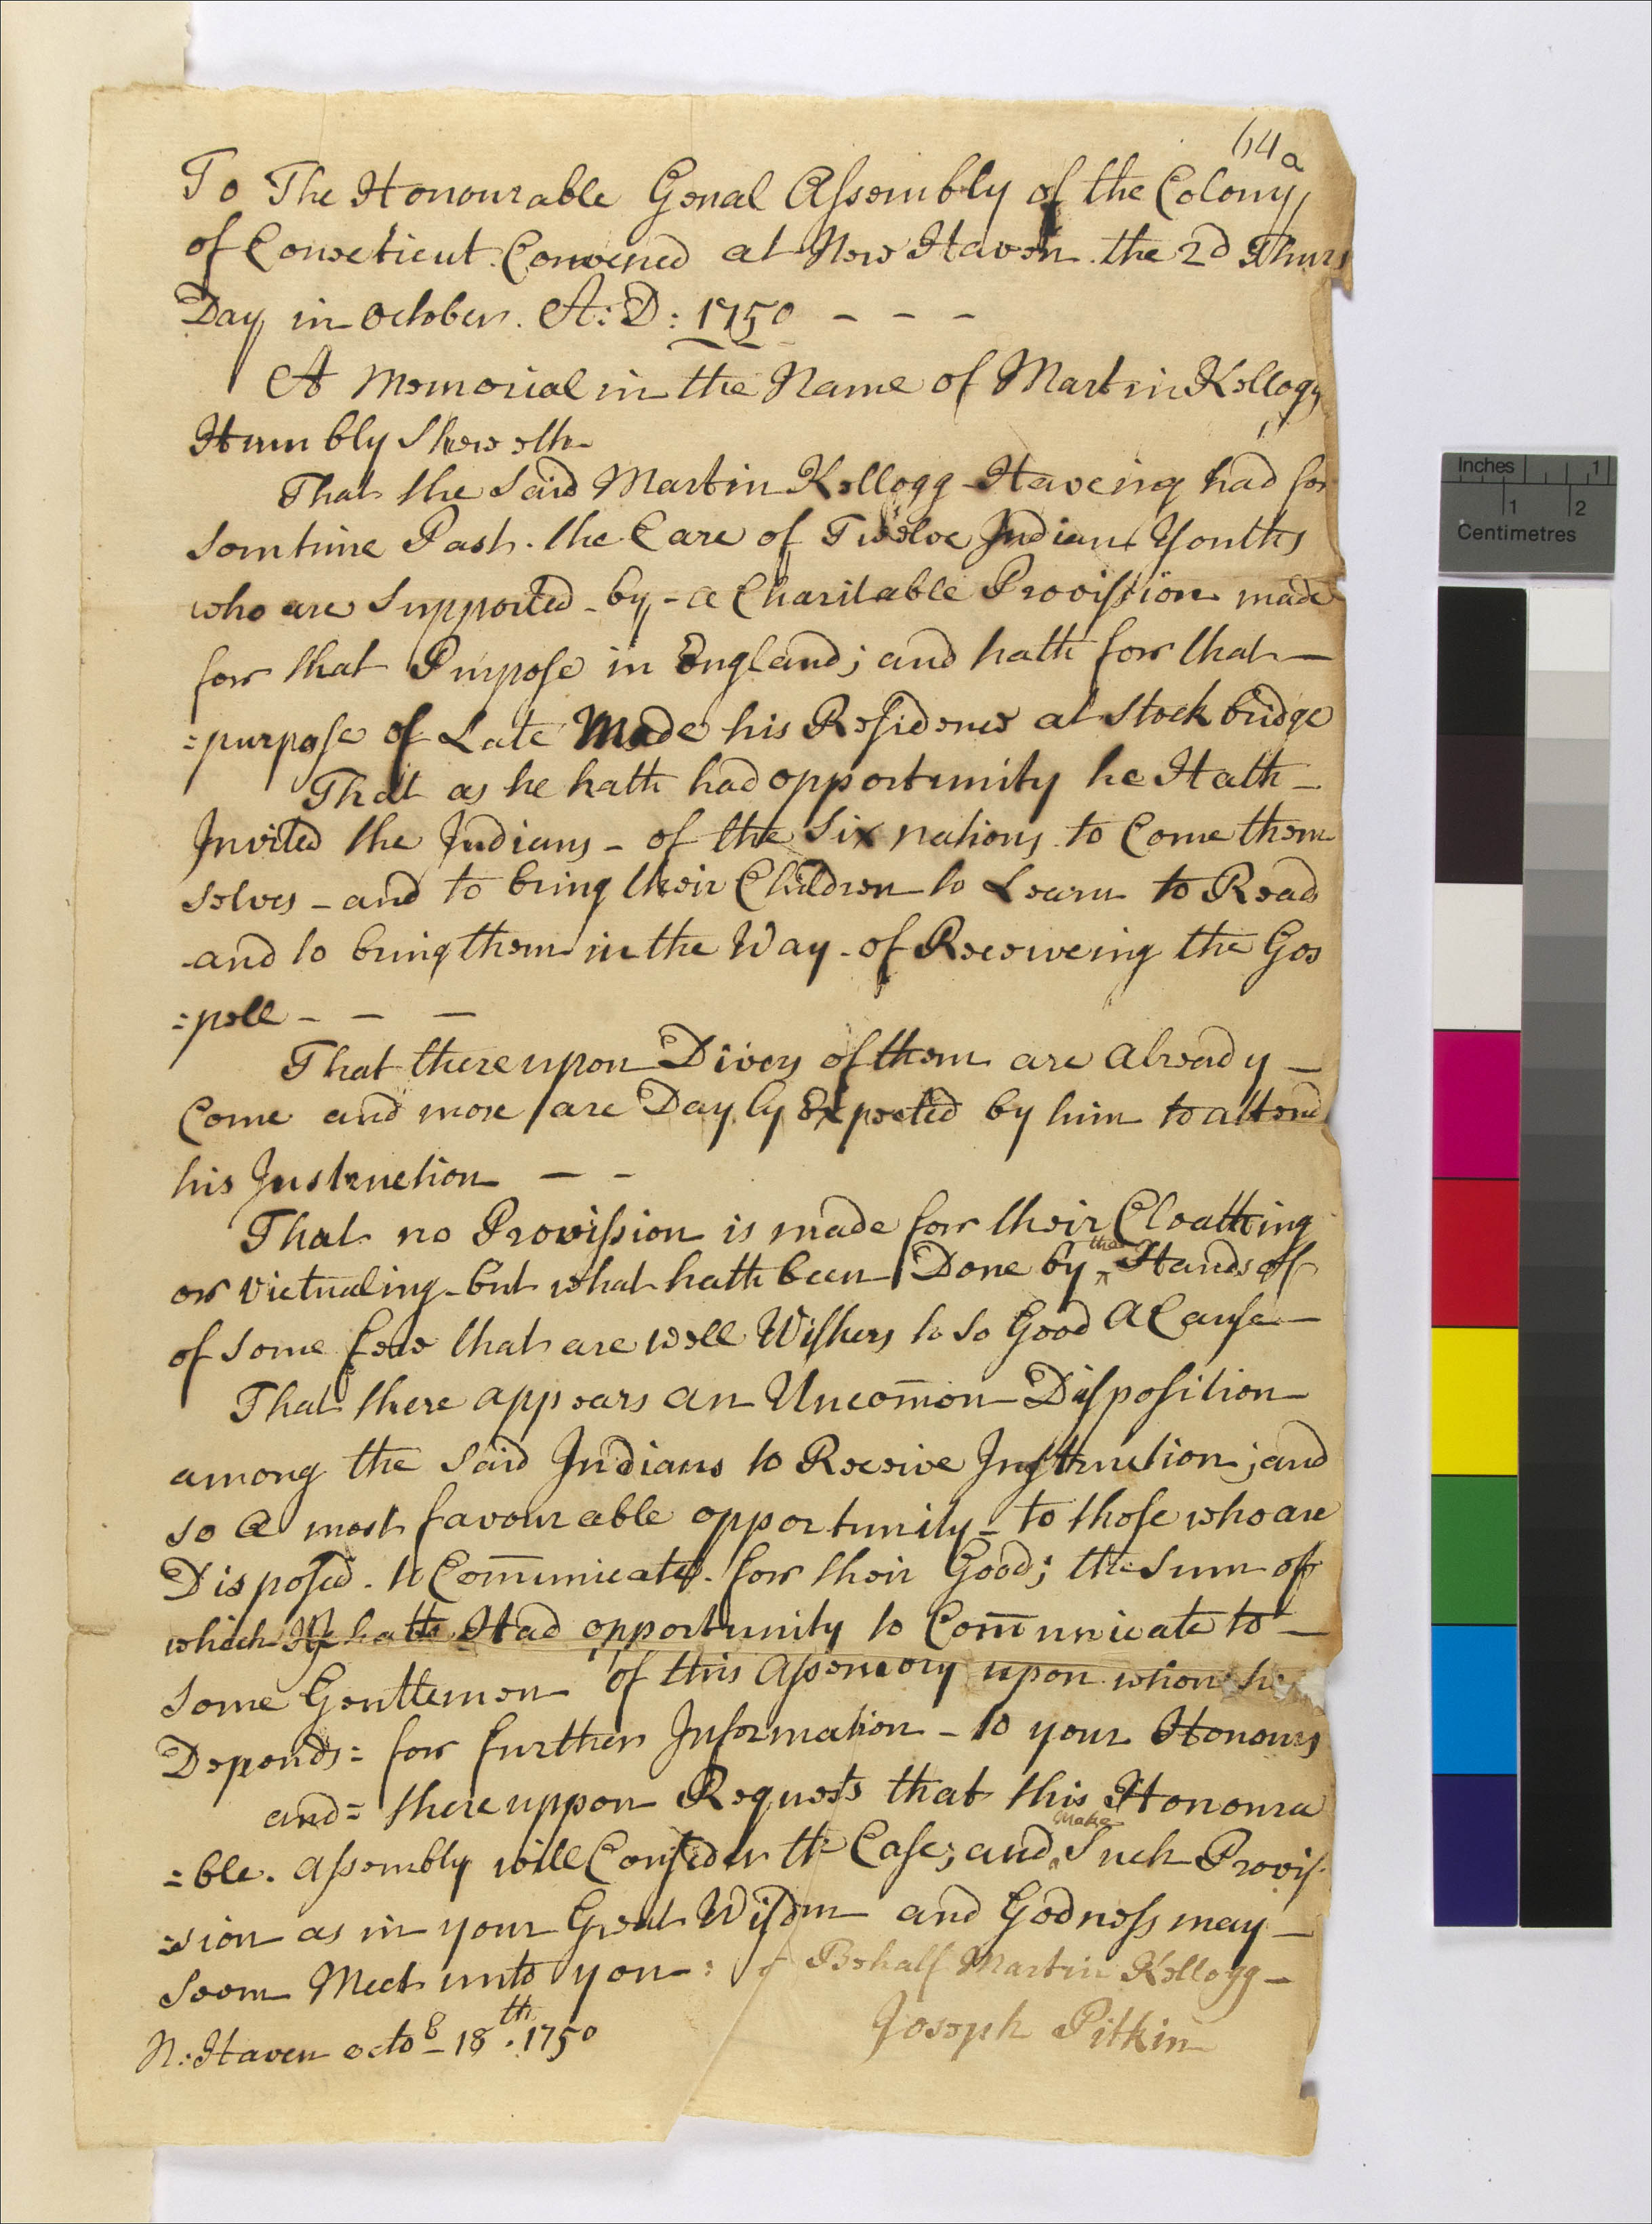 64a
To The Honourable Genal Assembly of the Colony
of Conecticut Convened at New Haven the 2d Thurs
Day in October. A:D: 1750 - - -
A Memorial in the Name of Martin Kellogg
Humbly Sheweth
That the Said Martin Kellogg Haveing had for
Somtime Past. the Care of Twelve Indian Youths
who are Supported - by - a Charitable Provission made
for that Purpose in England; and hath for that -
=purpose of Late Made his Residence at Stockbridge
That as he hath had opportunity he Hath -
Invited the Indians - of the Six nations to Come them
Selves - and to bring their Children to Learn to Read
and to bring them in the Way - of Receiveing the Gos
=pell - - -
That thereupon Divers of them are already -
Come and more are Dayly Expected by him to attend
his Instruction - -
That no Provission is made for their Cloathing
or victualing - but what hath been Done by the Hands of
of Some few that are well Wishers to So Good A Cause -
That there appears an Uncom̄on Disposition
among the Said Indians to Receive Instruction; and
So a most favourable opportunity - to those who are
Disposed. to Com̄unicate. for their Good; the Sum of
which He hath Had opportunity to Com̄unicate to -
Some Gentlemen of this Assembly upon whom he
Depends= for further Information - to your Honours
and= thereuppon Requests that this Honoura
=ble. assembly will Consider the Case; and make Such Provis
=sion as in your Great Wisdm and Godness may -
Seem Meet unto you: Behalf Martin Kellogg -
N:Haven octob 18th. 1750
Joseph Pitkin
Inches 1
1 2
Centimetres